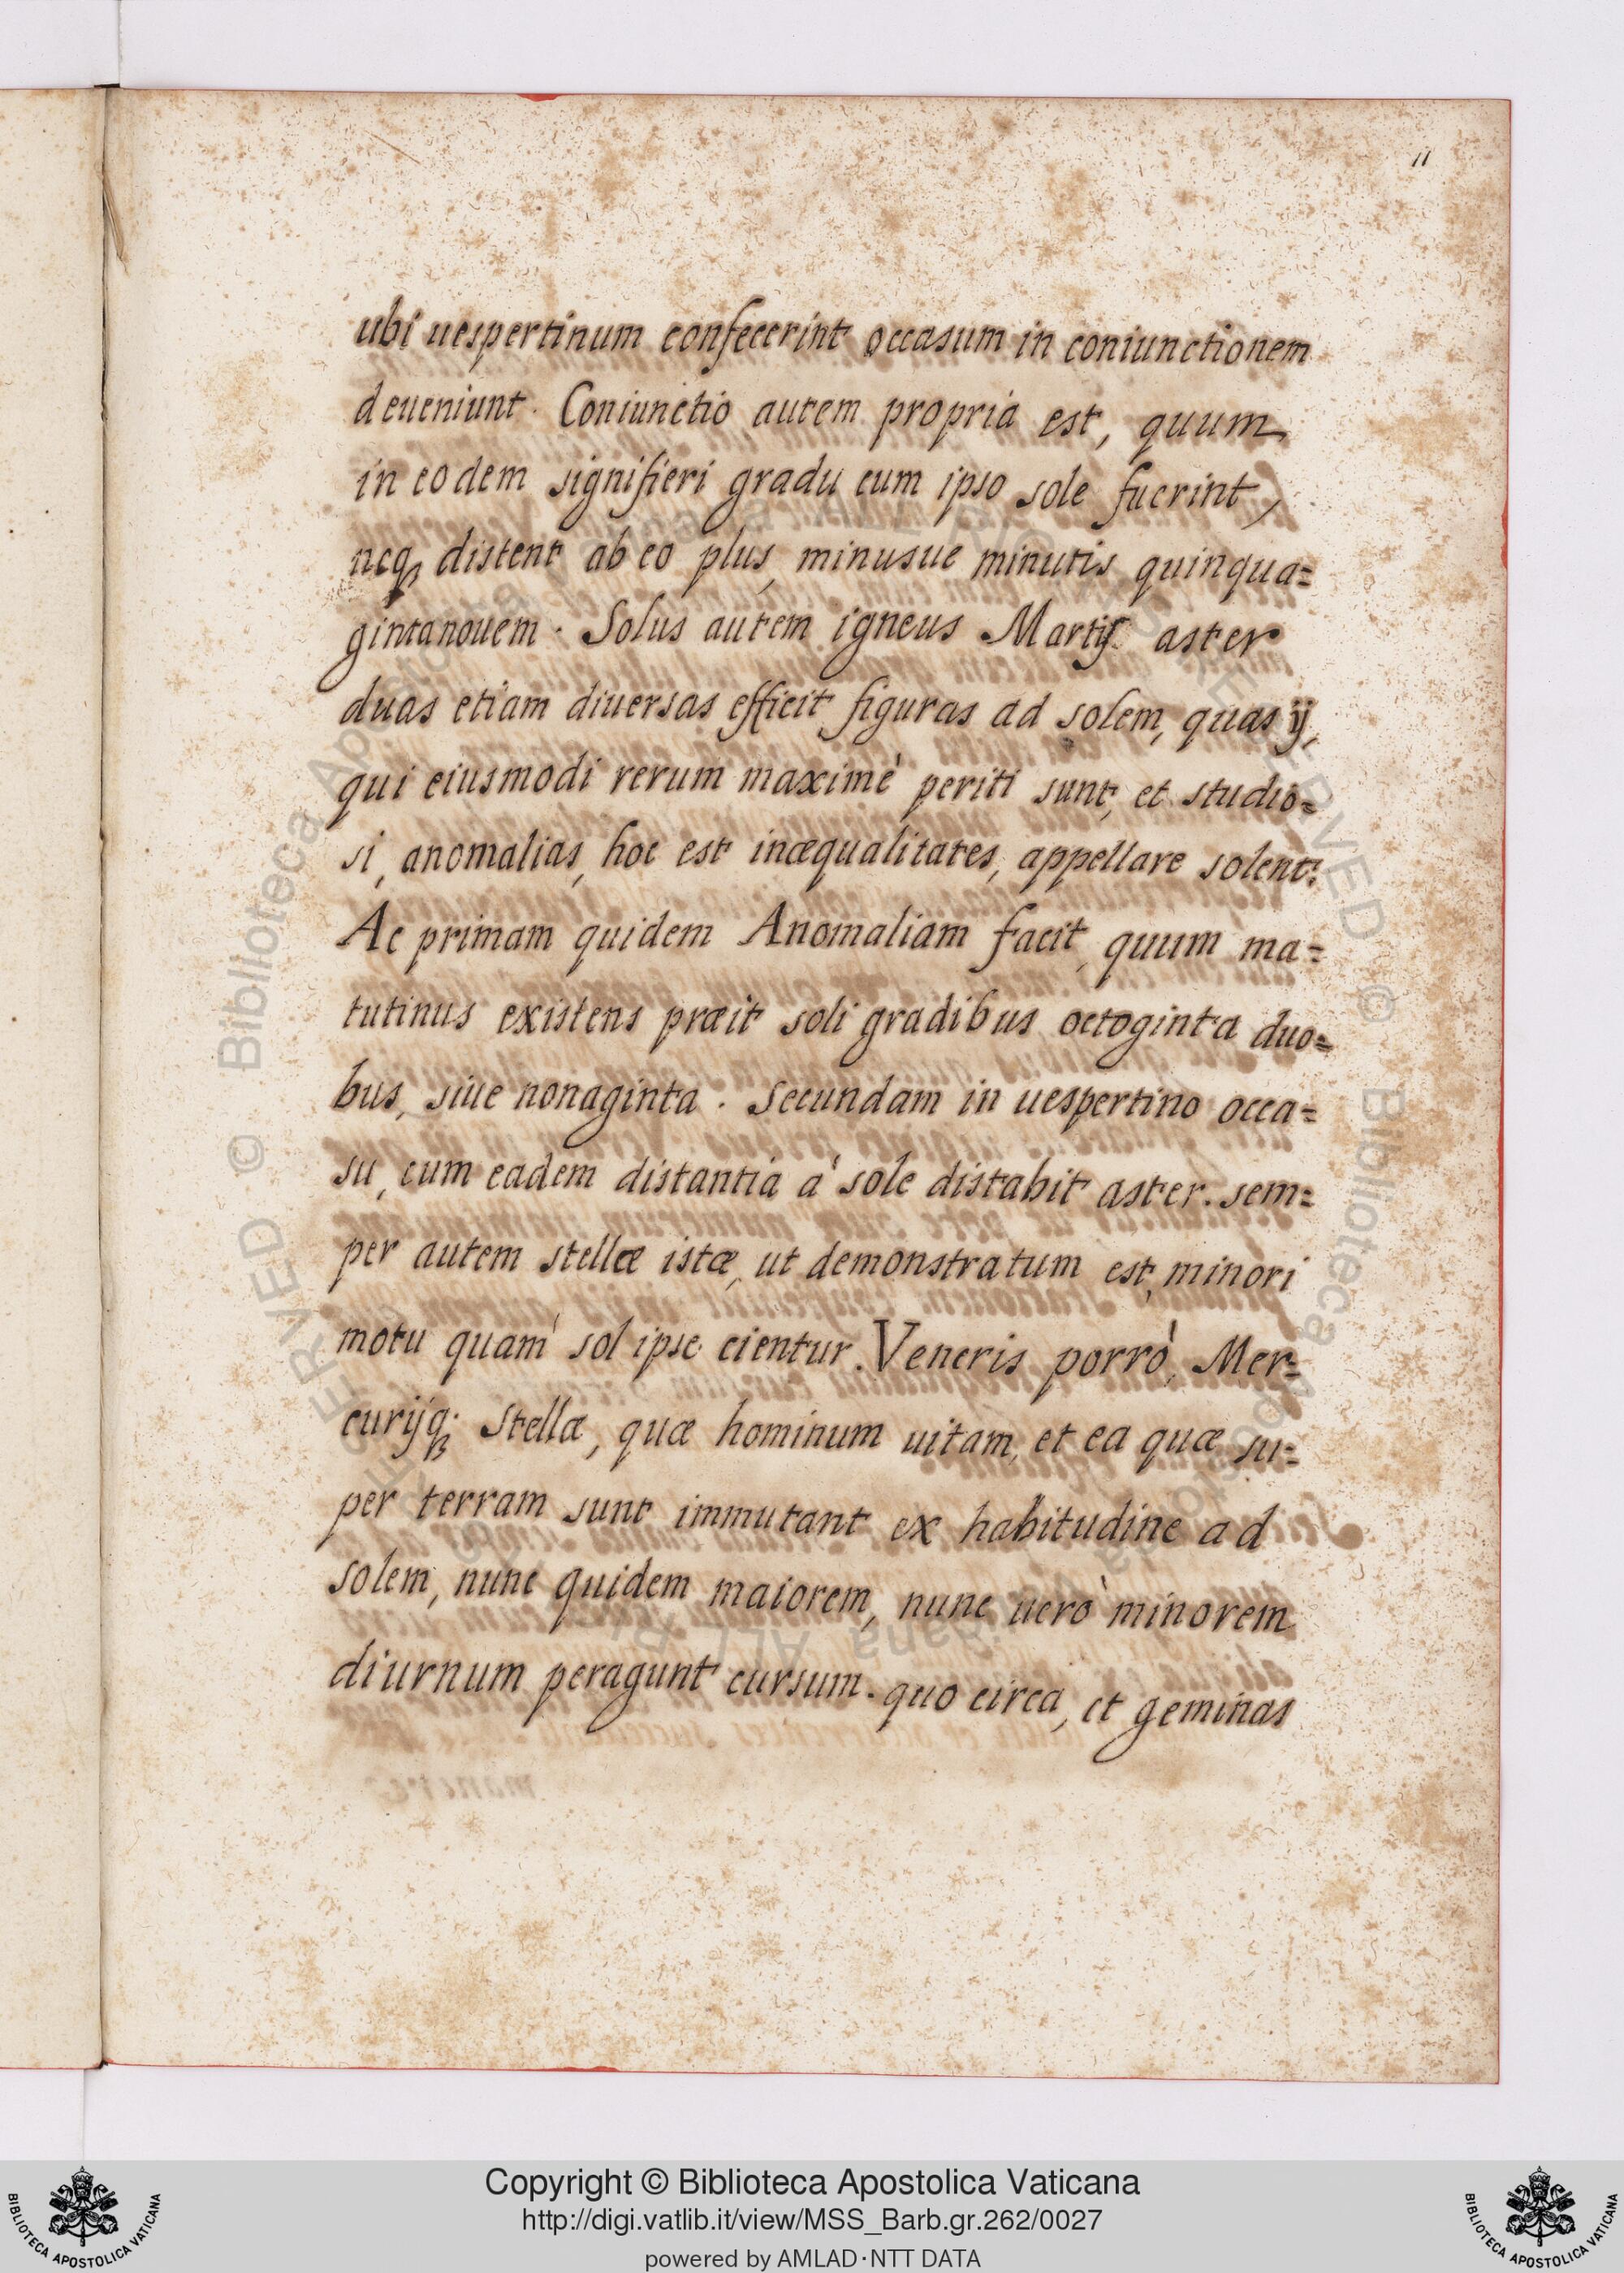 11
ubi uespertinum confecerint occasum in coniunctionem
deueniunt. Coniunctio autem propria est, quum
in eodem signiferi gradu cum ipso sole fuerint,
neq₃ distent ab eo plus, minusue minutis quinqua=
gintanouem. Solus autem igneus Martis aster
duas etiam diuersas efficit figuras ad solem, quas ij,
qui eiusmodi rerum maximè periti sunt, et studio=
si, anomalias, hoc est inæqualitates, appellare solent.
Ac primam quidem Anomaliam facit, quum ma=
tutinus existens præit soli gradibus octoginta duo=
bus, siue nonaginta. Secundam in uespertino occa=
su, cum eadem distantia à sole distabit aster. sem=
per autem stellæ istæ, ut demonstratum est, minori
motu quam sol ipse cientur. Veneris porrò, Mer=
curijq₃ Stellæ, quæ hominum uitam, et ea quæ su=
per terram sunt immutant ex habitudine ad
solem, nunc quidem maiorem, nunc uerò minorem
diurnum peragunt cursum. quo circa, et geminas
Copyright © Biblioteca Apostolica Vaticana
http://digi.vatlib.it/view/MSS_Barb.gr.262/0027
powered by AMLAD·NTT DATA
BIBLIOTECA APOSTOLICA VATICANA
BIBLIOTECA APOSTOLICA VATICANA